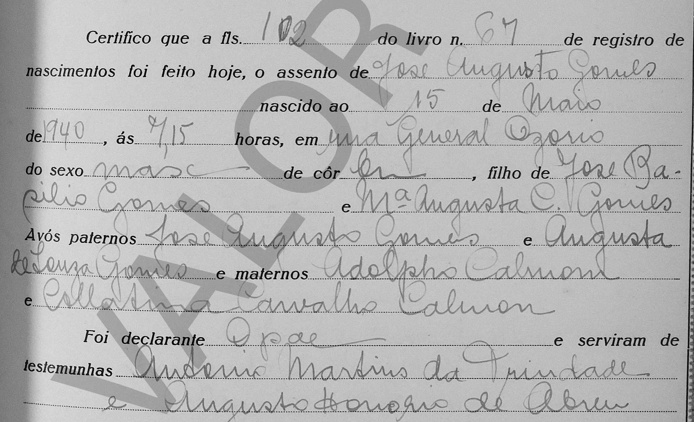 Certifico que a fls. 102 do livro n. 67 de registro de
nascimentos foi feito hoje, o assento de José Augusto Gomes
nascido ao 15 de Maio
de 1940, ás 7/15 horas, em rua General Ozorio
do sexo masc de côr br, filho de José Ba-
silio Gomes e Mª Augusta C. Gomes
Avós paternos José Augusto Gomes e Augusta
de Souza Gomes e maternos Adolpho Calmon
e Collatina Carvalho Calmon
Foi declarante O pae e serviram de
testemunhas Antonio Martins da Trindade
e Augusto Honorio de Abreu
VALOR